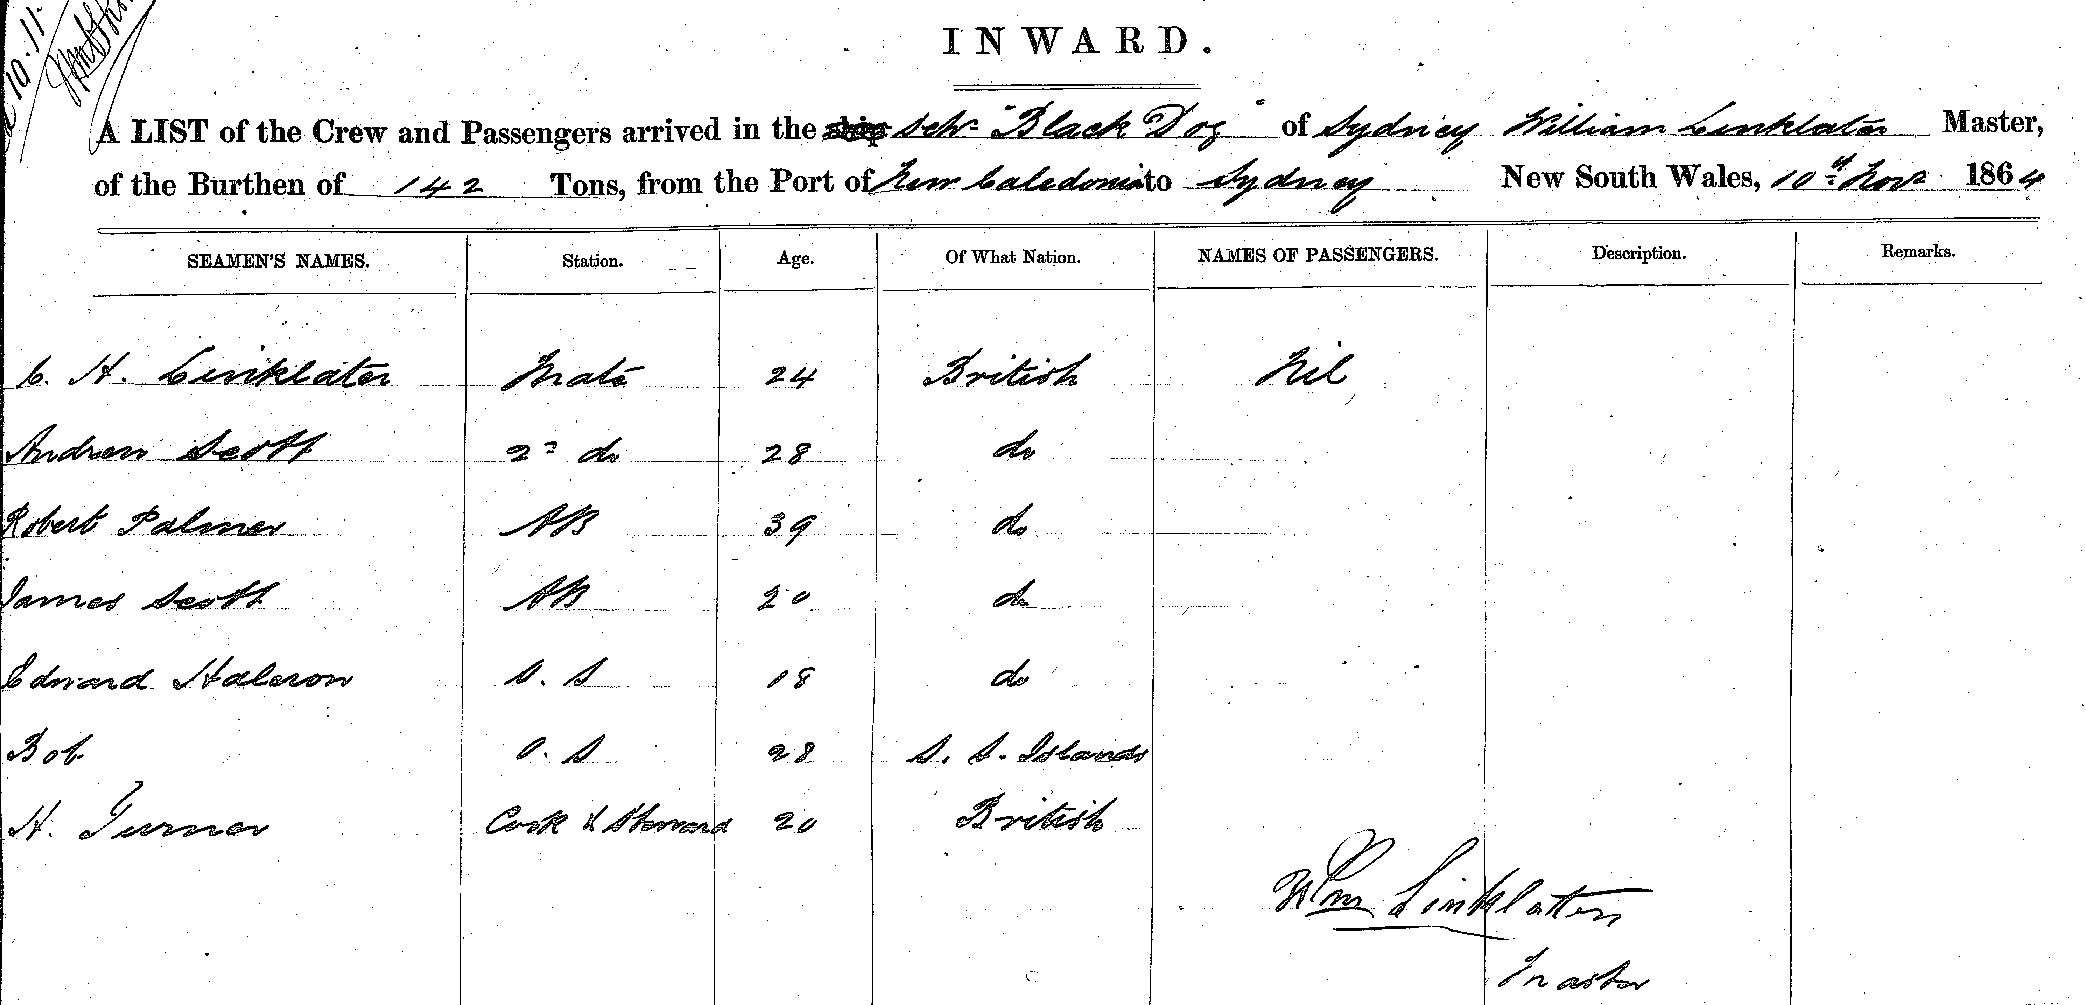 10.11.
INWARD.
A LIST of the Crew and Passengers arrived in the ship Schr "Black Dog" of Sydney William Linklater Master,
of the Burthen of 142 Tons, from the Port of New Caledonia to Sydney New South Wales, 10th Novr 1864
SEAMEN'S NAMES. Station. Age. Of What Nation. NAMES OF PASSENGERS. Description. Remarks.
C. H. Linklater Mate 24 British Nil
Andrew Scott 2d do 28 do
Robert Palmer AB 39 do
James Scott AB 20 do
Edward Halcrow O. S 18 do
Bob O. S 28 S. S. Islands
H. Turner Cook & Steward 20 British
Wm Linklater
Master